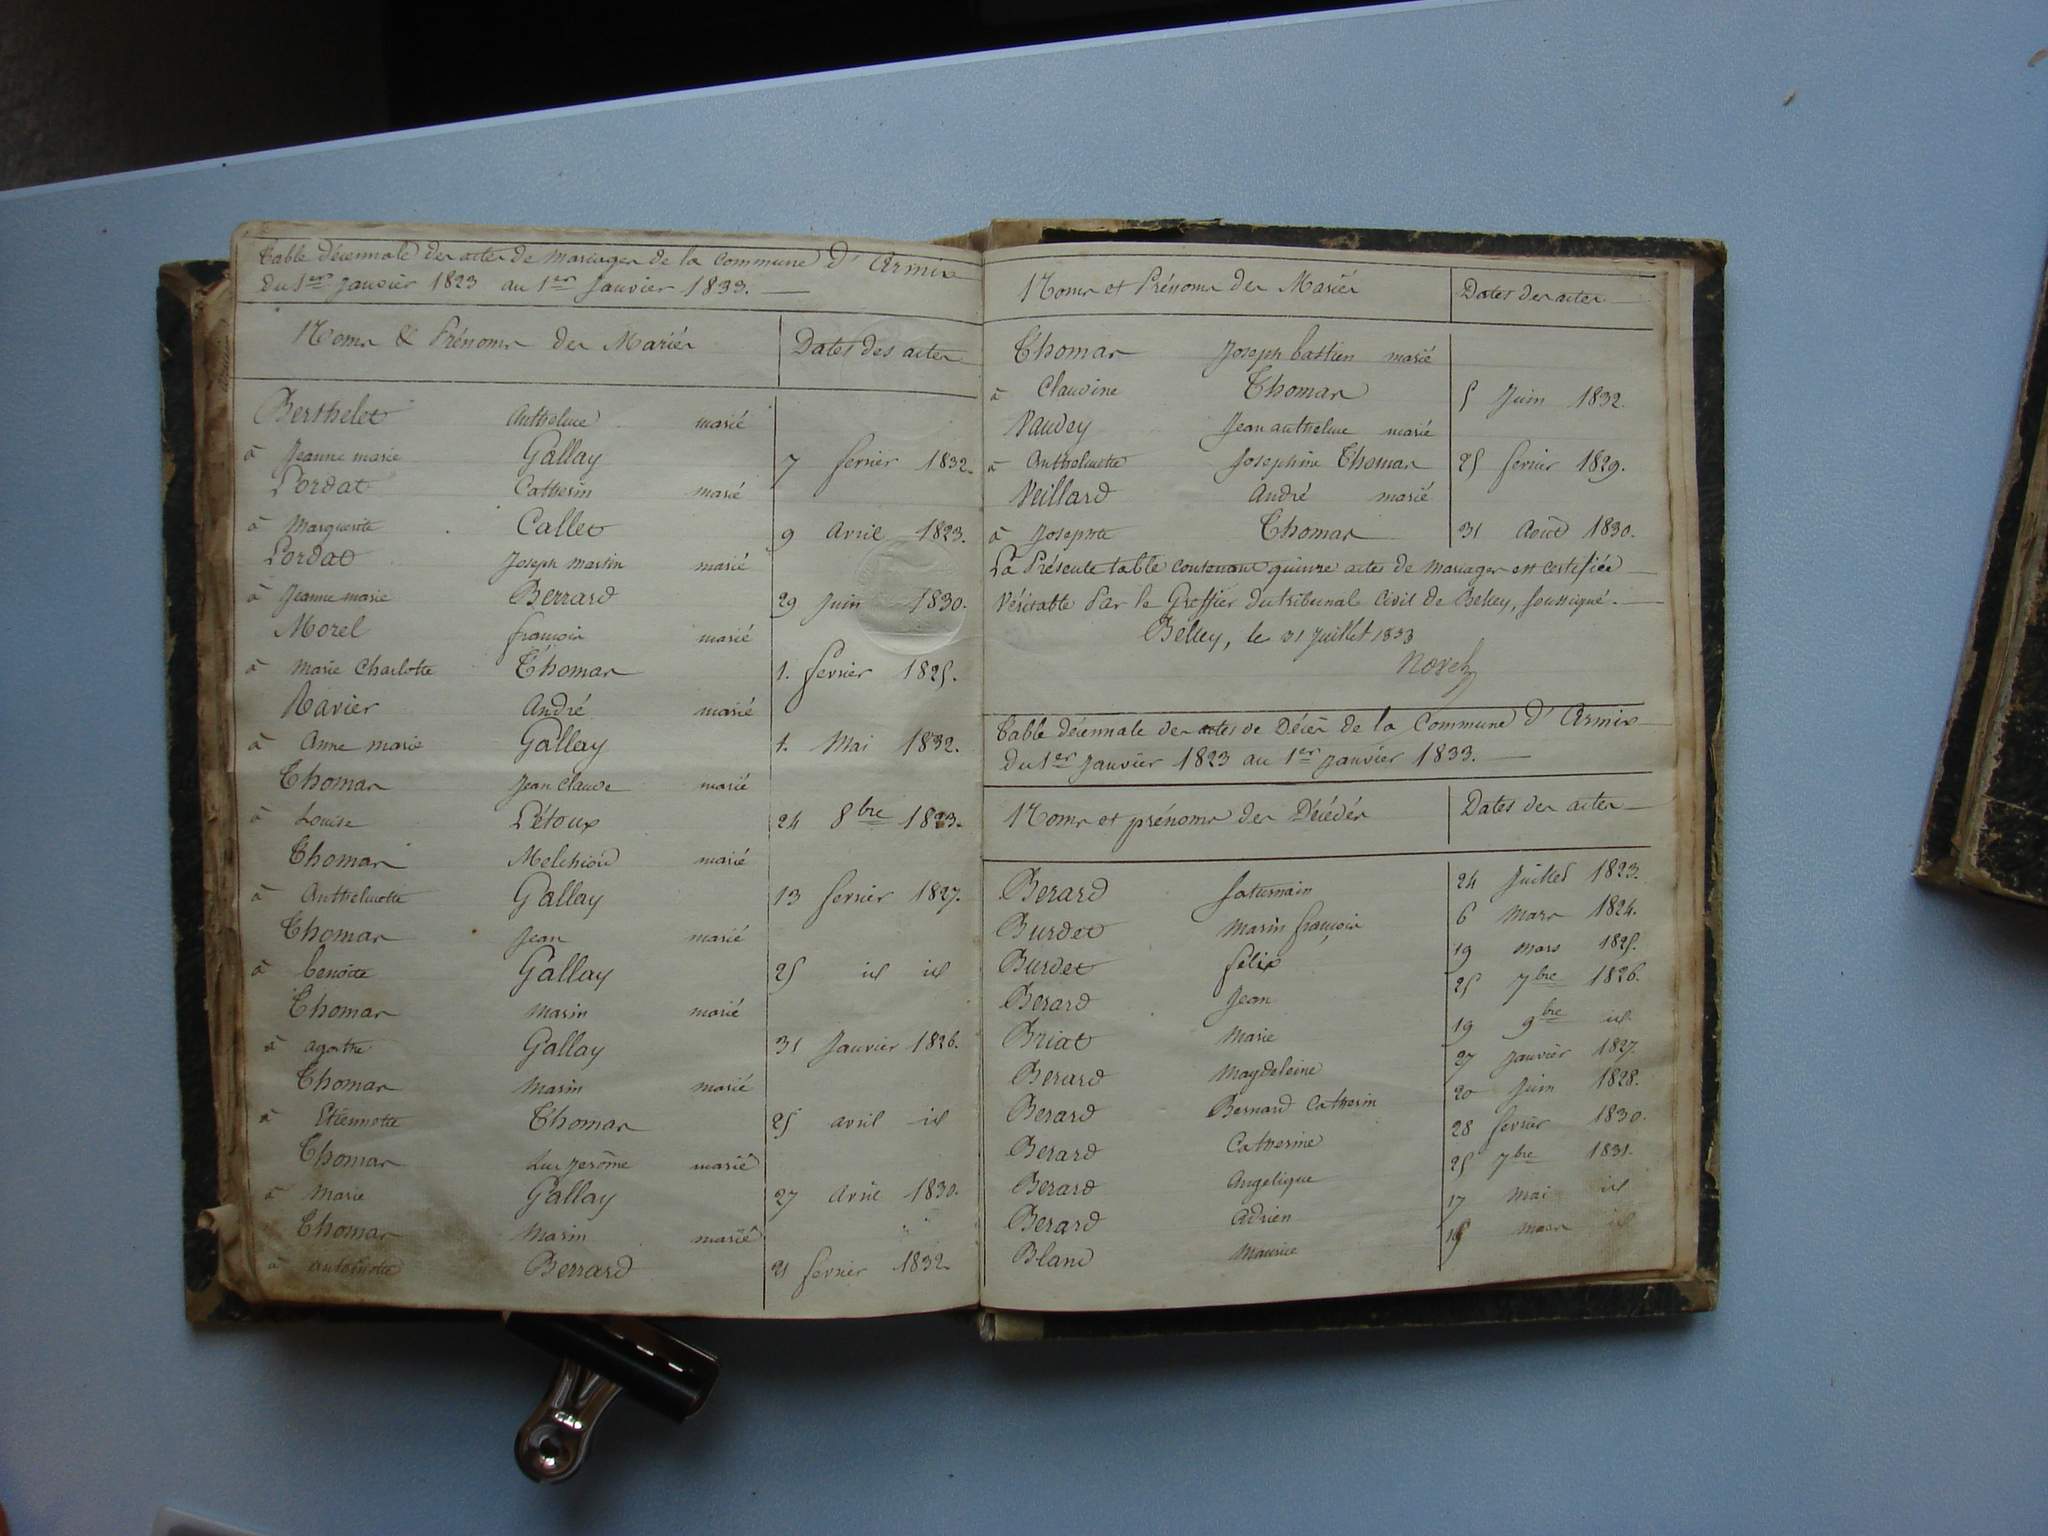 Table décennale des actes de Mariages de la Commune d'Armix
du 1er Janvier 1823 au 1er Janvier 1833.
Noms & Prénoms des Mariés Dates des actes
Berthelet Anthelme marié
à Jeanne marie Gallay 7 fevrier 1832.
Lordat Catherin marié
à Marguerite Callet 9 Avril 1823.
Lordat Joseph martin marié
à Jeanne marie Berrard 29 Juin 1830.
Morel françois marié
à Marie Charlotte Thomas 1. fevrier 1825.
Ravier André marié
à Anne marie Gallay 1. Mai 1832.
Thomas Jean Claude marié
à Louise Létoux 24 8bre 1823.
Thomas Melchiord marié
à Anthelmette Gallay 13 fevrier 1827.
Thomas Jean marié
à benoite Gallay 25 id id
Thomas Marin marié
à agathe Gallay 31 Janvier 1826.
Thomas Marin marié
à Etiennette Thomas 25 avril id
Thomas Luc Jerôme marié
à Marie Gallay 27 Avril 1830.
Thomas Marin marié
à Berrard 21 fevrier 1832.
Noms et Prénoms des Mariés Dates des actes
Thomas Joseph bastien marié
à Claudine Thomas 5 Juin 1832.
Vaudey Jean anthelme marié
à Anthelmette Josephine Thomas 25 fevrier 1829.
Veillard André marié
à Josephte Thomas 31 Août 1830.
La Présente table contenant quinze actes de mariages est certifiée
Véritable Par le Greffier du tribunal Civil de Belley, soussigné.
Belley, le 31 Juillet 1833
Table décennale des actes de Décès de la Commune d'Armix
du 1er Janvier 1823 au 1er Janvier 1833.
Noms et prénoms des Décédés Dates des actes
Berard Saturnain 24 Juillet 1823.
Burdet Marin françois 6 Mars 1824.
Burdet félix 19 mars 1825.
Berard Jean 25 7bre 1826.
Briat Marie 19 9bre id
Berard Magdeleine 27 Janvier 1827.
Berard Bernard Catherin 20 Juin 1828.
Berard Catherine 28 fevrier 1830.
Berard Angelique 25 7bre 1831.
Berard Adrien 17 Mai id
Bland Maurice mars id